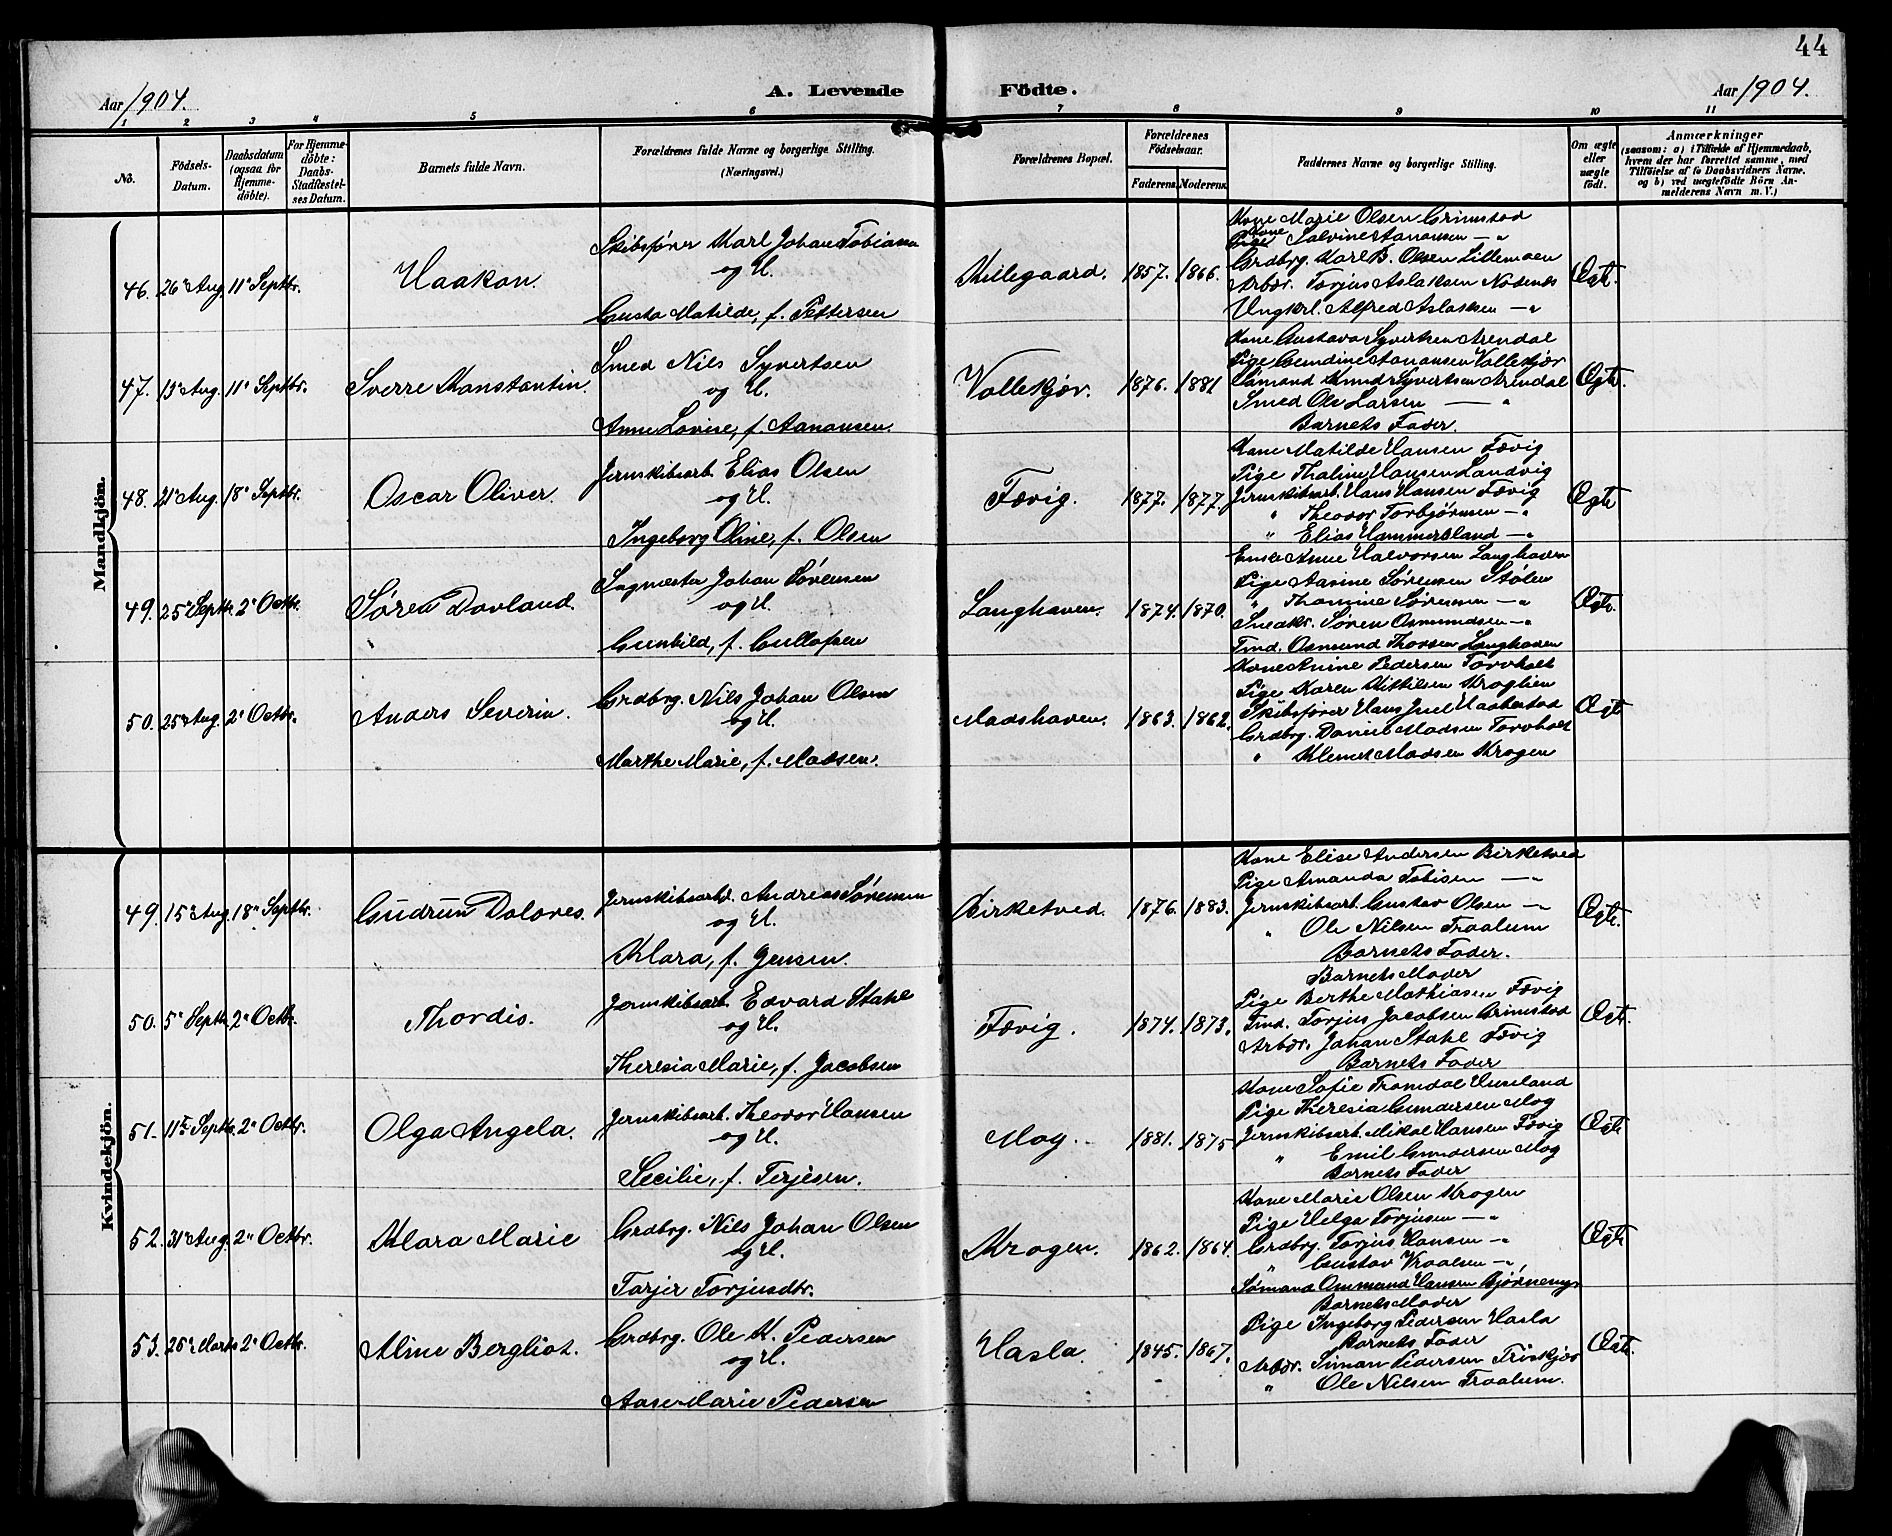 44
Aar 1904.
A. Levende Födte.
Aar 1904.
1 2 3 4 5 6 7 8 9 10 11
No.
Födsels-Datum.
Daabsdatum (ogsaa for Hjemme-döbte).
For Hjemme-döbte: Daabs-Stadfæstel-ses Datum.
Barnets fulde Navn.
Forældrenes fulde Navne og borgerlige Stilling.
(Næringsvei.)
Forældrenes Bopæl.
Forældrenes Födselsaar.
Faderens.
Moderens.
Faddernes Navne og borgerlige Stilling.
Om ægte eller uægte födt.
Anmærkninger
(saasom: a) i Tilfælde af Hjemmedaab, hvem der har forrettet samme, med Tilföielse af to Daabsvidners Navne, og b) ved uægtefödte Börn An-melderens Navn m. V.)
Mandkjön.
46. 26de Aug. 11te Septbr. Haakon.
Skibsfører Karl Johan Tobiasen
og H.
Gusta Matilde, f. Pettersen
Killegaard. 1857. 1866.
Kone Marie Olsen Grimstad
Kone Salvine Aanansen — "
Grdbrg. Karl B. Olsen Lillemoen
Arbdr. Torjus Aslaksen Nødenes
Ungkrl. Alfred Aslaksen — "
Ægte.
47. 13de Aug. 11te Septbr. Sverre Konstantin.
Smed Nils Syvertsen
og H.
Anne Lovise, f. Aanansen.
Vollekjær. 1876. 1881
Kone Gustava Syvertsen Arendal
Pige Gundine Aanansen Vollekjær
Sømand Knud Syvertsen Arendal
Smed Ole Larsen — "
Barnets Fader.
Ægte.
48. 21de Aug. 18de Septbr. Oscar Oliver.
Jernskibsarb. Elias Olsen
og H.
Ingeborg Oline, f. Olsen
Fævig. 1877. 1877.
Kone Matilde Hansen Fævig
Pige Thaline Hansen Landvig
Jernskibsarb. Hans Hansen Fævig
" Theodor Torbjørnsen — "
" Elias Hammersland — "
Ægte
49. 25de Septbr. 2den Octbr. Søren Dovland.
Sagmester Johan Sørensen
og H.
Gunhild, f. Gullofsen
Langhaven. 1874. 1870.
Enke Anne Halvorsen Langhaven
Pige Aasine Sørensen Stølen
" Thomine Sørensen — "
Snedkr. Søren Osmundsen — "
Tmd. Osmund Thorsen Langhaven
Ægte.
50. 25de Aug. 2den Octbr. Anders Severin.
Grdbrg. Nils Johan Olsen
og H.
Marthe Marie, f. Madsen.
Madshaven. 1863. 1862.
Kone Anine Pedersen Torvholt
Pige Karen Kittilsen Kroglien
Skibsfører Hans Juel Haabestad
Grdbrg. Daniel Madsen Torvholt
" Klemet Madsen Krogen
Ægte
Kvindekjön.
49. 15de Aug. 18de Septbr. Gudrun Dolores.
Jernskibsarbd. Andreas Sørensen
og H.
Klara, f. Jensen.
Birketved. 1876. 1883.
Kone Elise Andersen Birketved
Pige Amanda Tobisen — "
Jernskibsarb. Gustav Olsen — "
" Ole Nilsen Traalum
Barnets Fader.
Ægte.
50. 5te Septbr. 2den Octbr. Thordis.
Jernskibsarb. Edvard Stahl
og H.
Theresia Marie, f. Jacobsen
Fævig. 1874. 1873.
Barnets Moder
Pige Berthe Mathiasen Fævig
Tmd. Torjus Jacobsen Grimstad
Arbdr. Johan Stahl Fævig
Barnets Fader
Ægte.
51. 11te Septbr. 2den Octbr. Olga Angela.
Jernskibsarb. Theodor Hansen
og H.
Secilie, f. Terjesen.
Moy. 1881. 1875
Kone Sofie Tromdal Hunsland
Pige Theresia Gundersen Moy
Jernskibsarb. Mikal Hansen Fævig
" Emil Gundersen Moy
Barnets Fader
Ægte
52. 31te Aug. 2den Octbr. Klara Marie
Grdbrg. Nils Johan Olsen
og H.
Torjer Torjusdtr.
Krogen. 1862. 1864.
Kone Marie Olsen Krogen
Pige Helga Torjusen — "
Grdbrg. Torjus Hansen — "
" Gustav Kroalsen — "
Sømand Ommund Hansen Bjørnemyr
Ægte
53. 26de Marts 2den Octbr. Aline Bergliot.
Grdbrg. Ole K. Pedersen
og H.
Aase Marie Pedersen
Hasla. 1845. 1867.
Barnets Moder
Pige Ingeborg Pedersen Hasla
Barnets Fader
Arbdr. Simon Pedersen Triskjær
" Ole Nilsen Traalum.
Ægte.